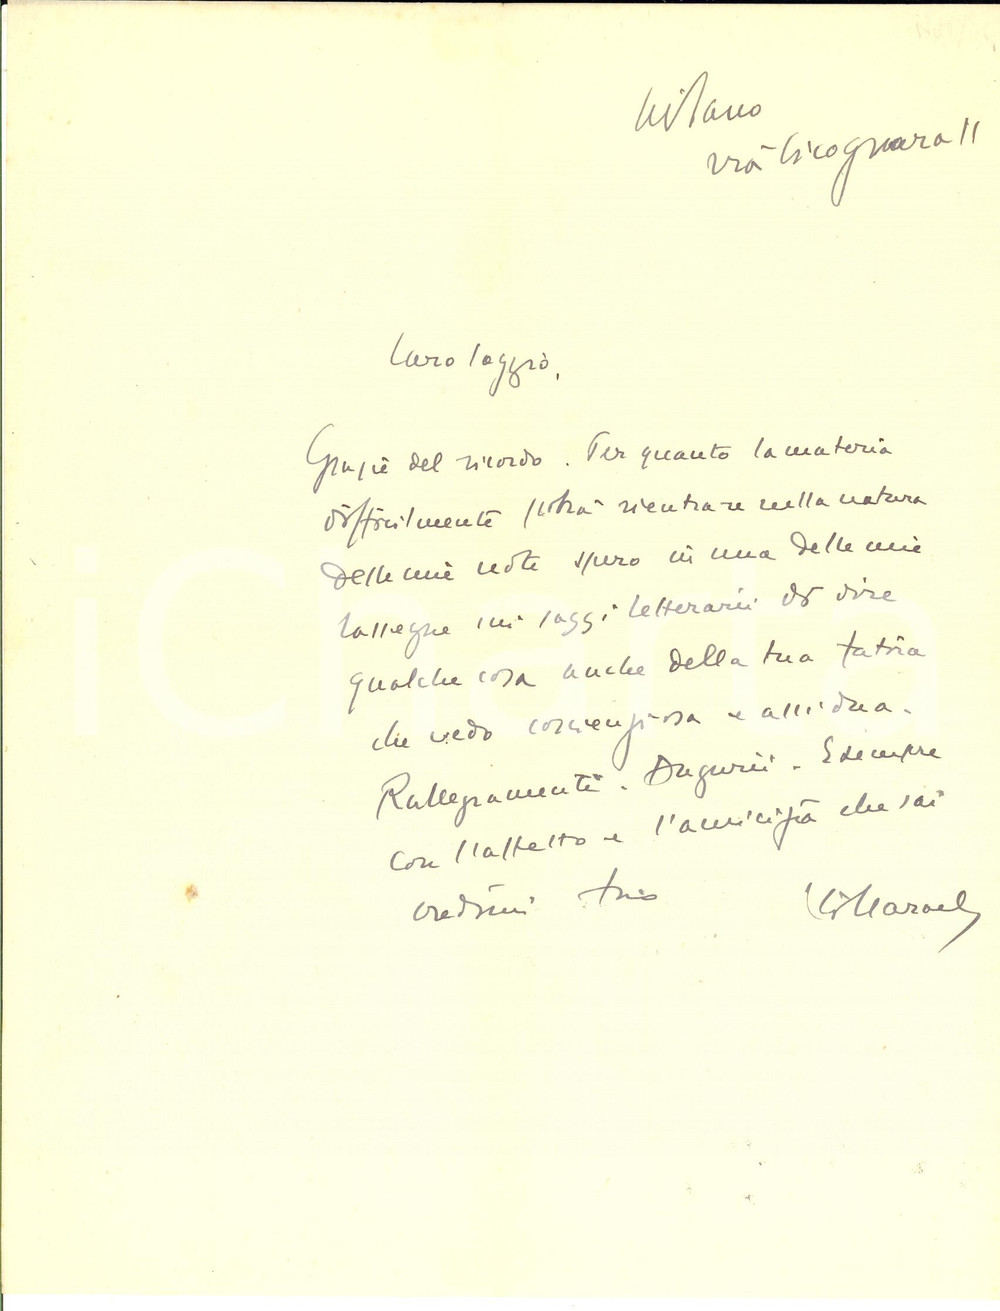 Milano
via Cicognara 11
Caro Saggio,
Grazie del ricordo. Per quanto la materia
difficilmente potrà rientrare nella natura
delle mie note spero in una delle mie
rassegne sui saggi letterarii di dire
qualche cosa anche della tua fatica
che vedo coscienziosa e assidua.
Rallegramenti. Augurii. E sempre
con l'affetto e l'amicizia che sai
credimi tuo
iCharta